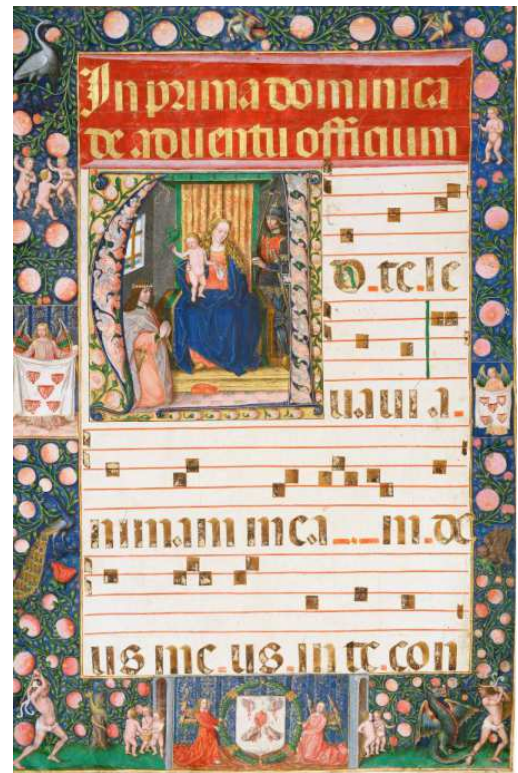 In prima dominica
de aduentu officium
AD_te_le
uaui a_
nimam mea__m_de
us me_us_in te_con